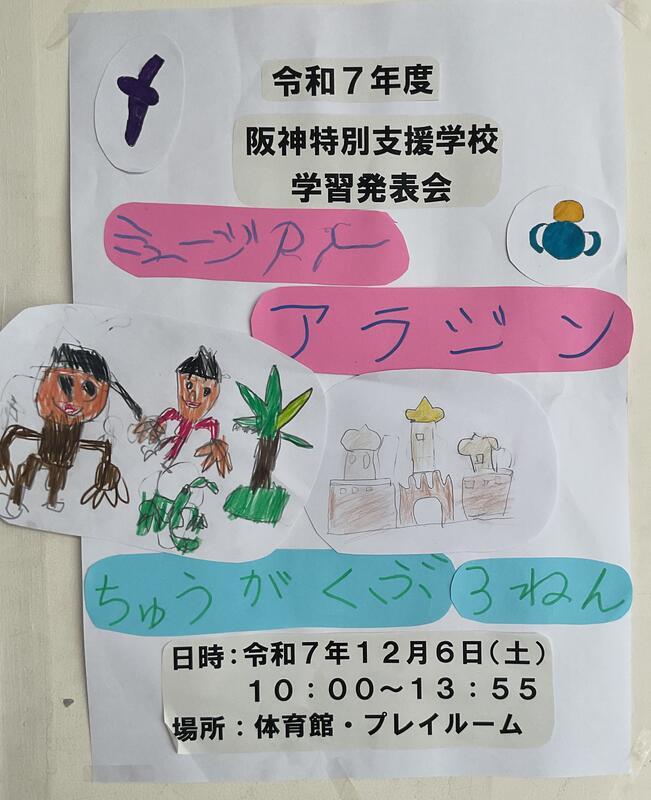 令和７年度
阪神特別支援学校
学習発表会
ミュージカル
アラジン
ちゅうがくぶ３ねん
日時：令和７年１２月６日（土）
１０：００～１３：５５
場所：体育館・プレイルーム